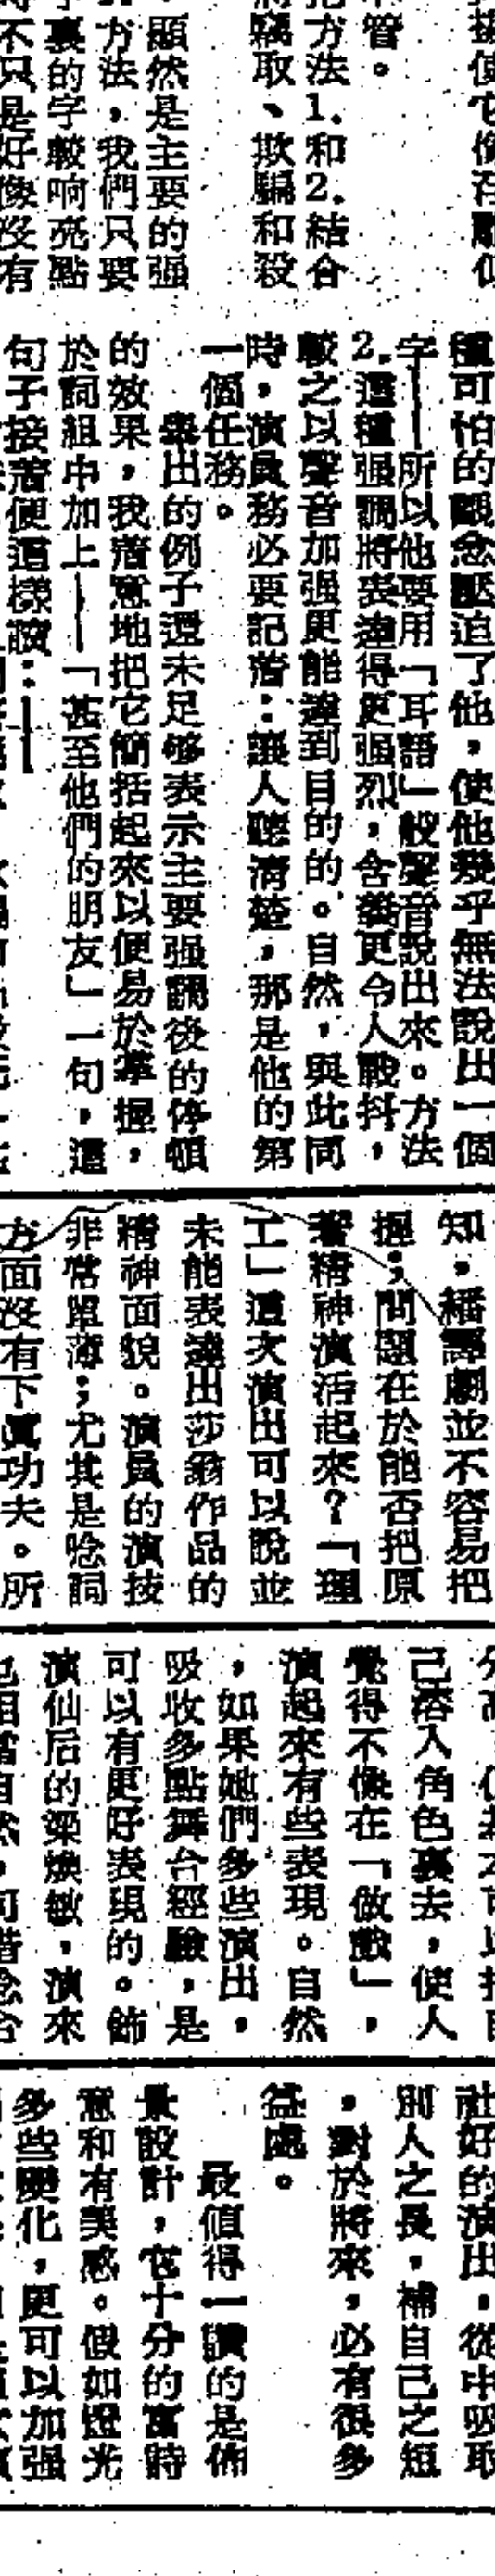 管。
把方法1.和2.結合
竊取、欺騙和殺
顯然是主要的强
方法，我們只要
裏的字較响亮點
不只是好像沒有
種可怕的觀念壓迫了他，使他幾乎無法說出一個
字——所以他要用「耳語」般聲音說出來。方法
2.這種强調將表達得更强烈，含義更令人戰抖，
較之以聲音加强更能達到目的的。自然，與此同
時，演員務必要記着：讓人聽清楚，那是他的第
一個任務。
舉出的例子還未足够表示主要强調後的停頓
的效果，我着意地把它簡括起來以便易於掌握，
於詞組中加上——「甚至他們的朋友」一句，這
句子接着便這樣讀：——
知，繙譯劇並不容易把
握；問題在於能否把原
著精神演活起來？「理
工」這次演出可以說並
未能表達出莎翁作品的
精神面貌。演員的演技
非常單薄；尤其是唸詞
方面沒有下眞功夫。所
己溶入角色裏去，使人
覺得不像在「做戲」，
演起來有些表現。自然
，如果她們多些演出，
吸收多點舞台經驗，是
可以有更好表現的。飾
演仙后的梁煥敏，演來
也相當自然，可惜唸台
社好的演出，從中吸取
別人之長，補自己之短
，對於將來，必有很多
益處。
最值得一讚的是佈
景設計，它十分的富詩
意和有美感。假如燈光
多些變化，更可以加强